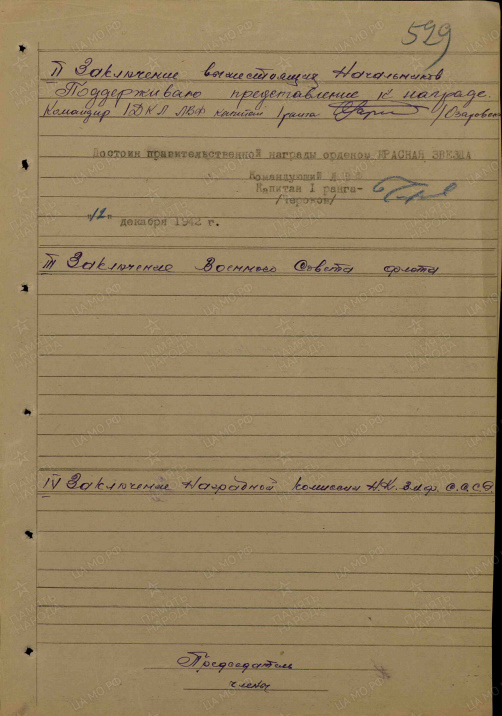 529
II Заключение вышестоящих Начальников
Поддерживаю представление к награде.
Командир 1ДКЛ ЛВФ капитан 1 ранга /Озаровск
Достоин правительственной награды орденом КРАСНАЯ ЗВЕЗДА
Командующий ЛВФ
Капитан I ранга-
/Чероков/
"12" декабря 1942 г.
III Заключение Военного Совета флота
IV Заключение Наградной комиссии Н.К.В.М.Ф. С.С.С.Р.
Председатель
члены